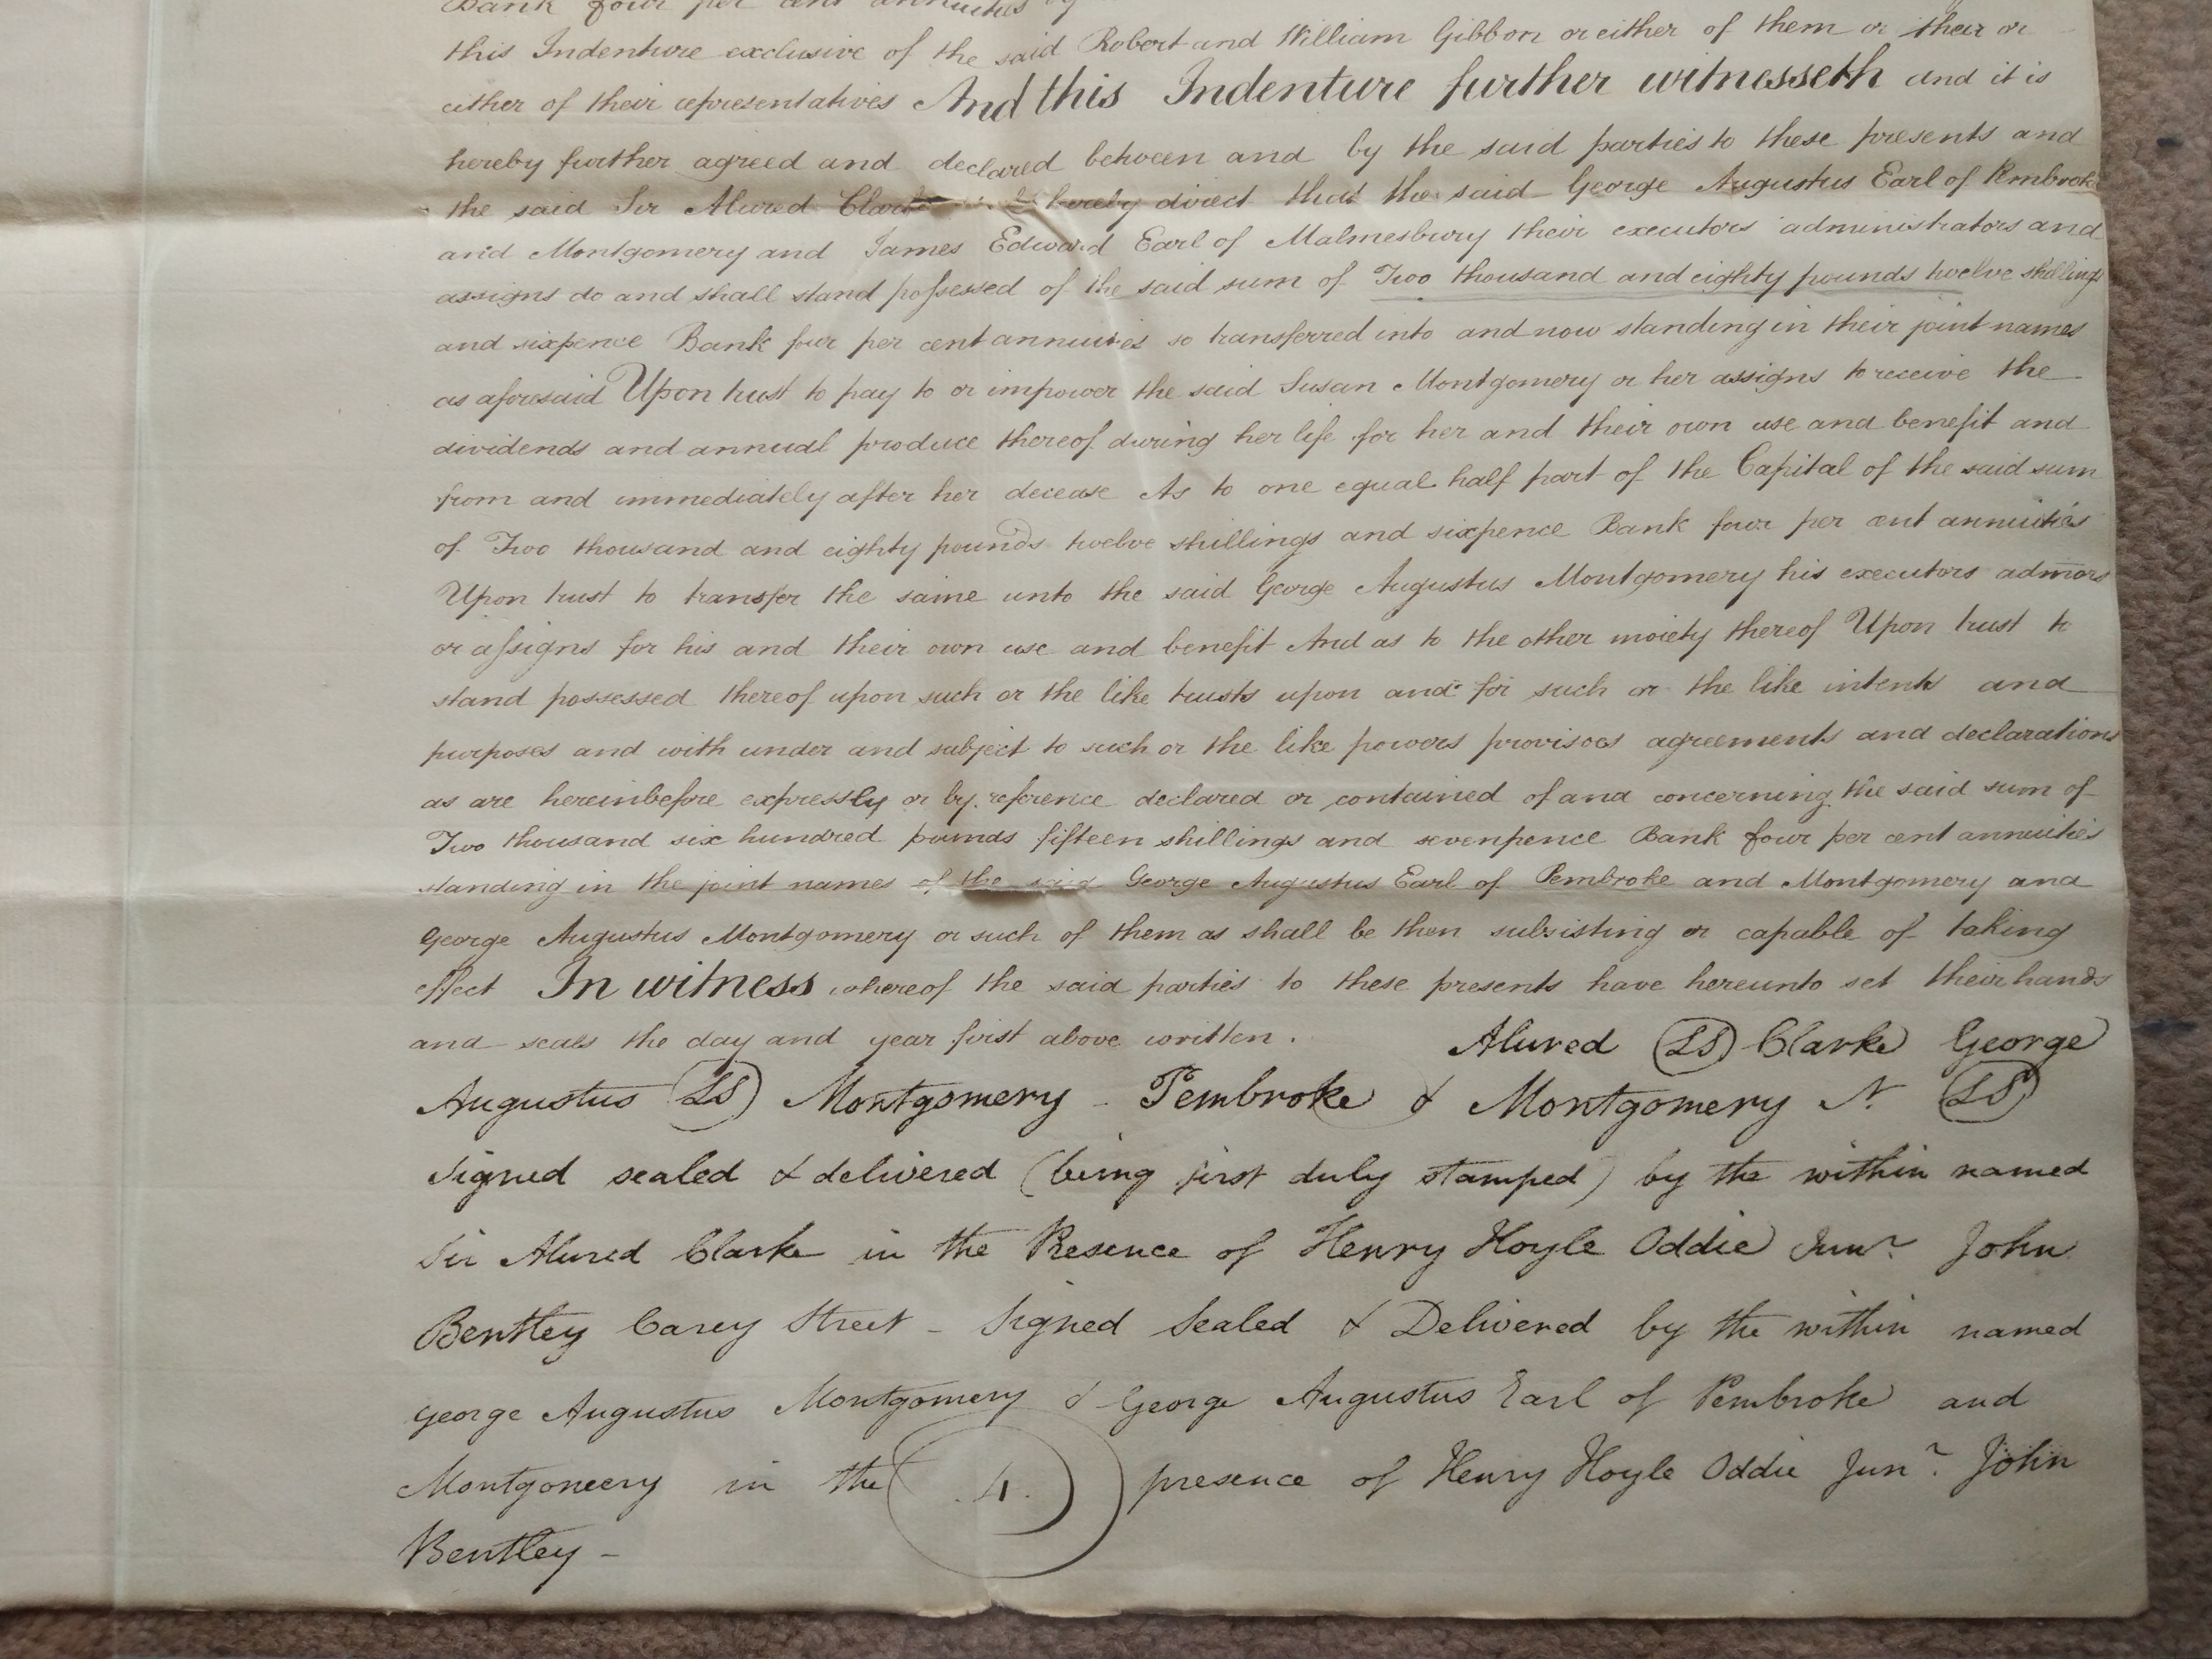 Bank four per cent annuities
this Indenture exclusive of the said Robert and William Gibbon or either of them or their or
either of their representatives And this Indenture further witnesseth and it is
hereby further agreed and declared between and by the said parties to these presents and
the said Sir Alured Clarke hereby direct that the said George Augustus Earl of Pembroke
and Montgomery and James Edward Earl of Malmesbury their executors administrators and
assigns do and shall stand possessed of the said sum of Two thousand and eighty pounds twelve shillings
and sixpence Bank four per cent annuities so transferred into and now standing in their joint names
as aforesaid Upon trust to pay to or impower the said Susan Montgomery or her assigns to receive the
dividends and annual produce thereof during her life for her and their own use and benefit and
from and immediately after her decease As to one equal half part of the Capital of the said sum
of Two thousand and eighty pounds twelve shillings and sixpence Bank four per cent annuities
Upon trust to transfer the same unto the said George Augustus Montgomery his executors admors
or assigns for his and their own use and benefit And as to the other moiety thereof Upon trust to
stand possessed thereof upon such or the like trusts upon and for such or the like intents and
purposes and with under and subject to such or the like powers provisoes agreements and declarations
as are hereinbefore expressly or by reference declared or contained of and concerning the said sum of
Two thousand six hundred pounds fifteen shillings and sevenpence Bank four per cent annuities
standing in the joint names of the said George Augustus Earl of Pembroke and Montgomery and
George Augustus Montgomery or such of them as shall be then subsisting or capable of taking
effect In witness whereof the said parties to these presents have hereunto set their hands
and seals the day and year first above written. Alured (LS) Clarke George
Augustus (LS) Montgomery - Pembroke & Montgomery (LS)
Signed sealed & delivered (being first duly stamped) by the within named
Sir Alured Clarke in the Presence of Henry Hoyle Oddie Junr John
Bentley Carey Street - Signed Sealed & Delivered by the within named
George Augustus Montgomery & George Augustus Earl of Pembroke and
Montgomery in the .4. presence of Henry Hoyle Oddie Junr. John
Bentley -